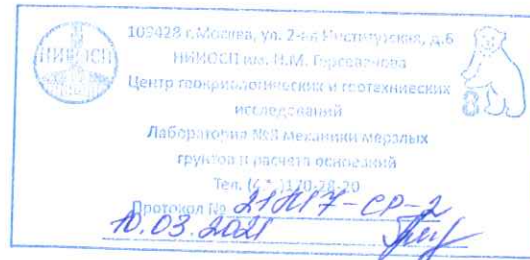 НИИОСП
109428 г.Москва, ул. 2-я Институтская, д.6
НИИОСП им. Н.М. Герсеванова
Центр геокриологических и геотехнических
исследований
Лаборатория №8 механики мерзлых
грунтов и расчета оснований
8
Тел. 170-28-20
Протокол № 21М17-СР-2
10.03.2021